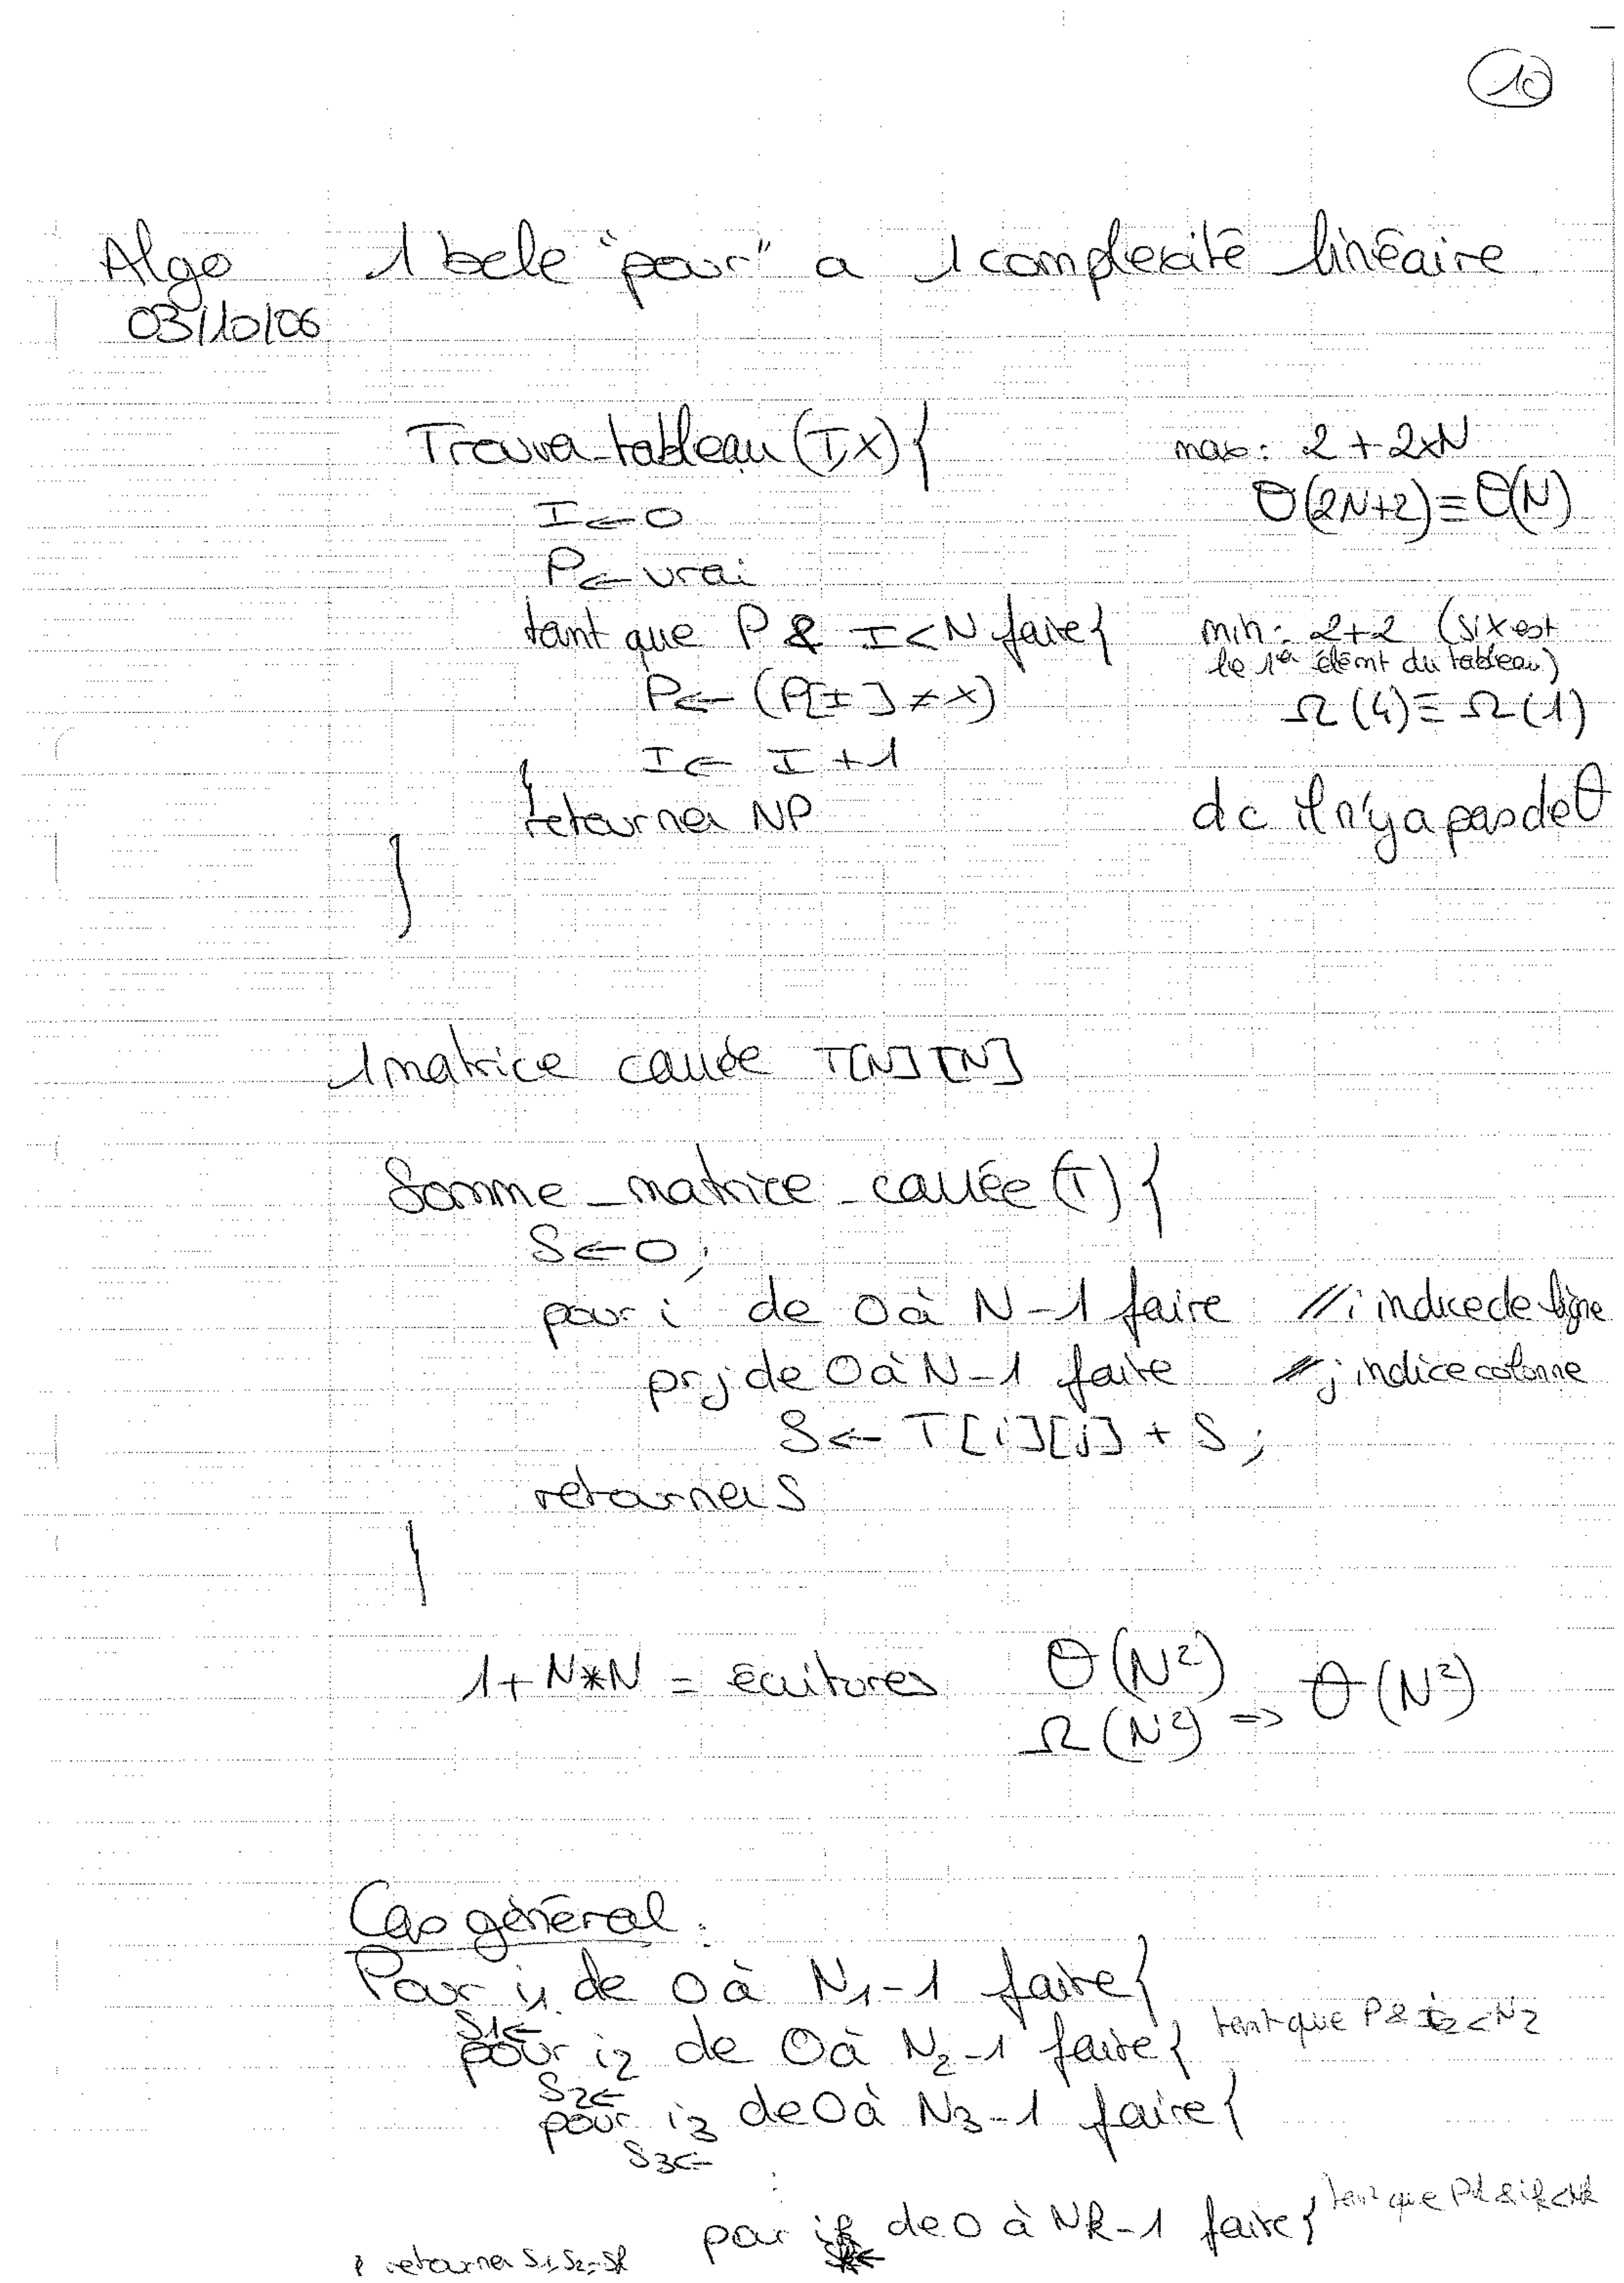 10
Algo 1 bcle "pour" a 1 complexité linéaire
03/10/06
Trouver_tableau (T,X) { max: 2 + 2xN
I ← 0 O(2N+2) ≡ O(N)
P ← vrai
tant que P & I < N faire { min: 2+2 (si x est
le 1er élémt du tableau)
P ← (P[I] ≠ X) Ω(4) ≡ Ω(1)
I ← I + 1
}
retourner NP dc il n'y a pas de θ
}
1 matrice carrée T[N][N]
Somme_matrice_carrée (T) {
S ← 0;
pour i de 0 à N-1 faire // i indice de ligne
pr j de 0 à N-1 faire // j indice colonne
S ← T[i][j] + S;
retourner S
}
1 + N*N = écritures O(N²)
Ω(N²) => θ(N²)
Cas général :
Pour i1 de 0 à N1-1 faire {
S1 ←
pour i2 de 0 à N2-1 faire { tant que P & i2 < N2
S2 ←
pour i3 de 0 à N3-1 faire {
S3 ←
⋮
pour ik de 0 à Nk-1 faire { tant que Pk & ik < Nk
Sk ←
} retourner S1, S2, ..., Sk